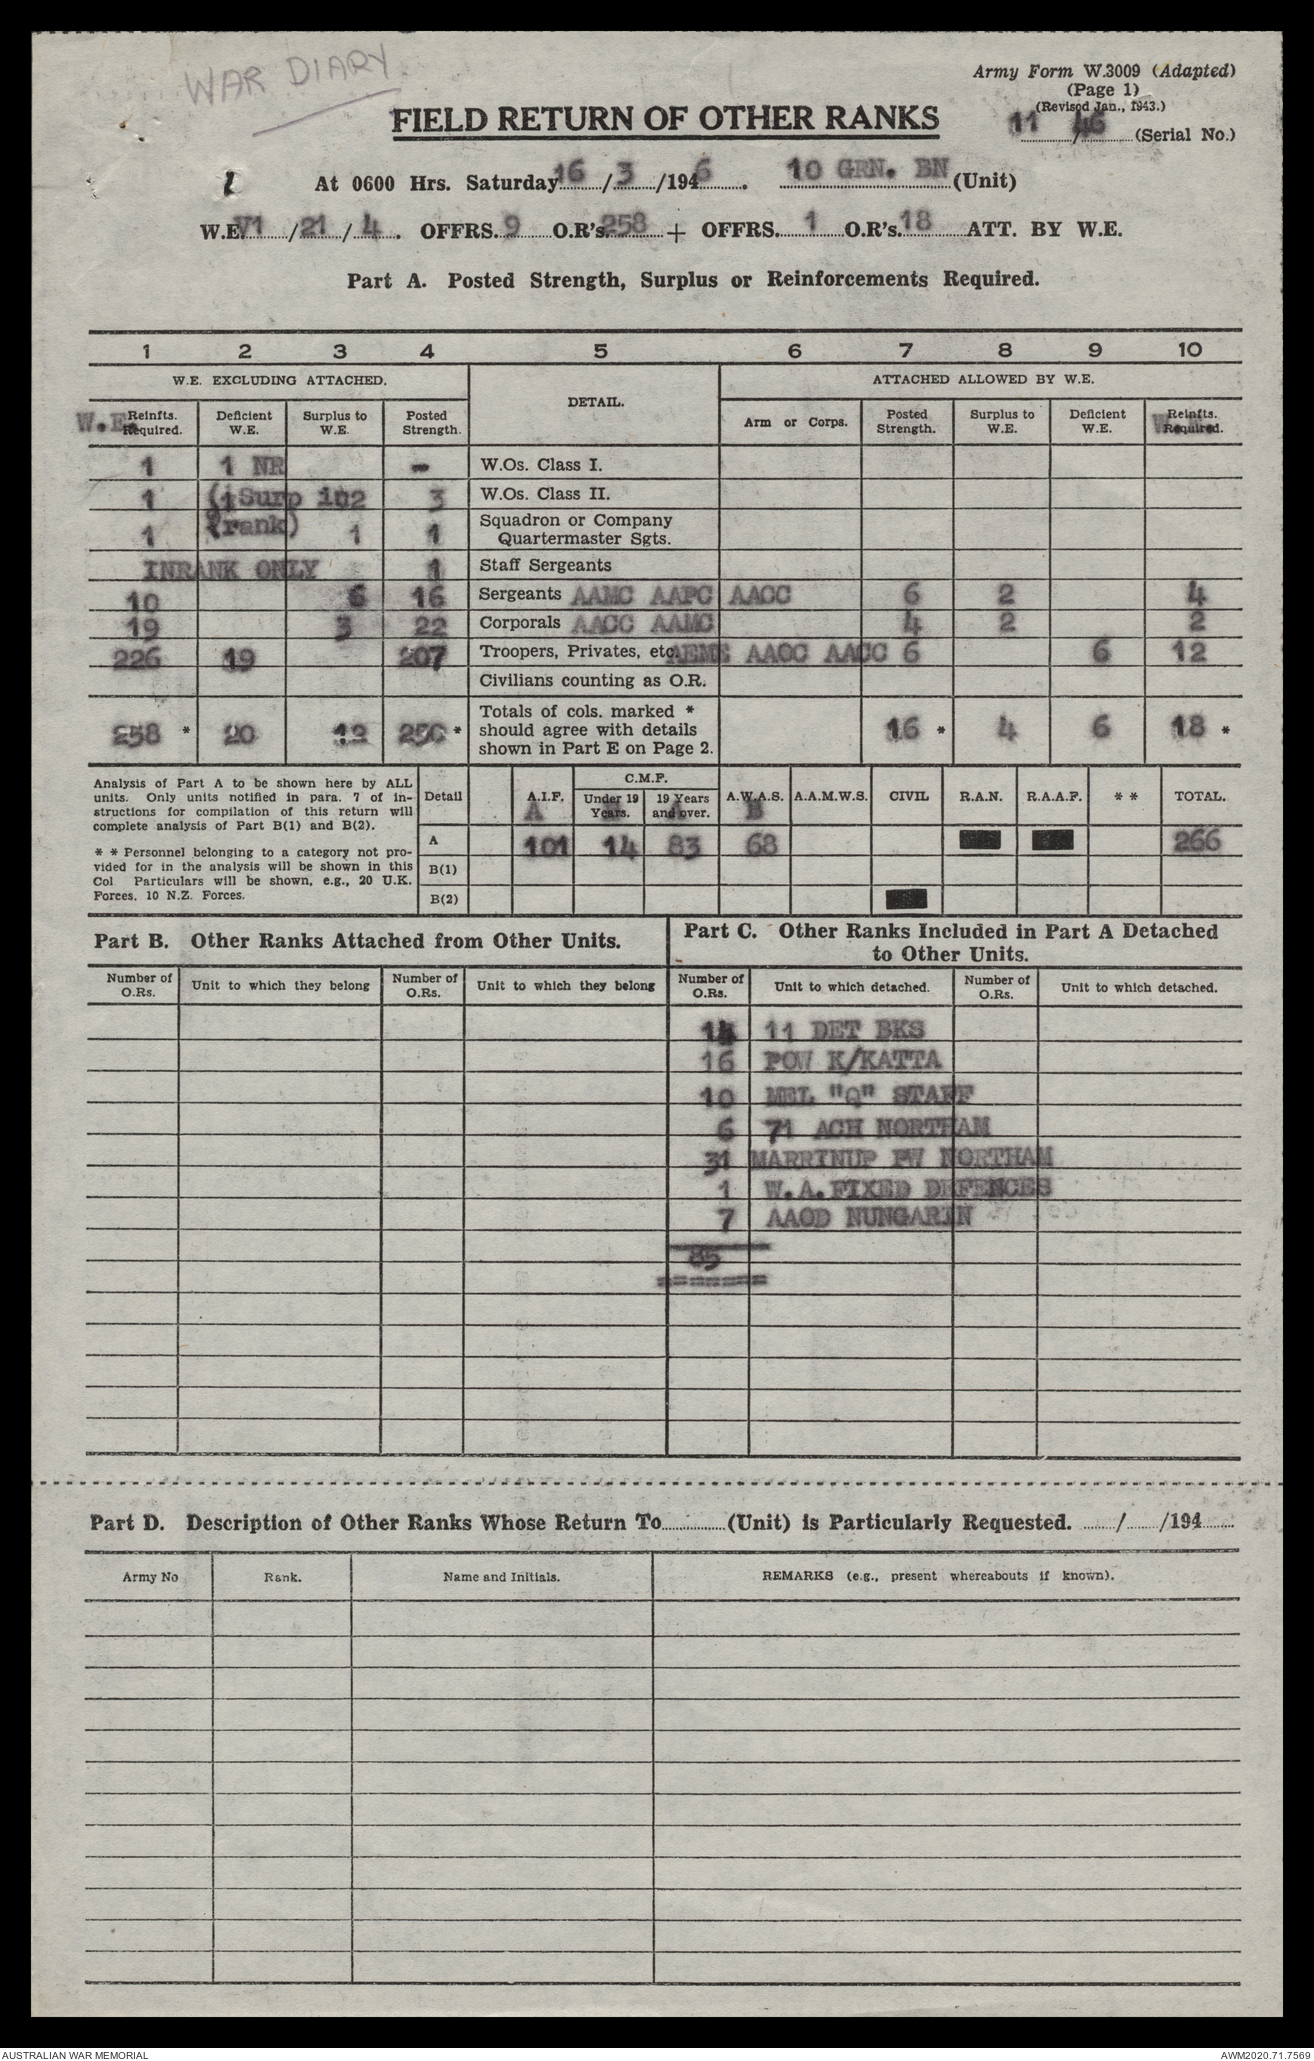 WAR DIARY
Army Form W.3009 (Adapted)
(Page 1)
(Revised Jan., 1943.)
FIELD RETURN OF OTHER RANKS
11 / 46 (Serial No.)
1 At 0600 Hrs. Saturday 16 / 3 /1946. 10 GRN. BN (Unit)
W.E. V1 / 21 / 4 . OFFRS. 9 O.R's. 258 + OFFRS. 1 O.R's. 18 ATT. BY W.E.
Part A. Posted Strength, Surplus or Reinforcements Required.
1 2 3 4 5 6 7 8 9 10
W.E. EXCLUDING ATTACHED. DETAIL. ATTACHED ALLOWED BY W.E.
W.E. Reinfts. Required. Deficient W.E. Surplus to W.E. Posted Strength. Arm or Corps. Posted Strength. Surplus to W.E. Deficient W.E. Reinfts. Required.
1 1 NR - W.Os. Class I.
1 (1 Surp in 2 3 W.Os. Class II.
1 (rank) 1 1 Squadron or Company Quartermaster Sgts.
INRANK ONLY 1 Staff Sergeants
10 6 16 Sergeants AAMC AAPC AACC 6 2 4
19 3 22 Corporals AACC AAMC 4 2 2
226 19 207 Troopers, Privates, etc. AEME AAOC AACC 6 6 12
Civilians counting as O.R.
258 * 20 12 250 * Totals of cols. marked * should agree with details shown in Part E on Page 2. 16 * 4 6 18 *
Analysis of Part A to be shown here by ALL
units. Only units notified in para. 7 of in-
structions for compilation of this return will
complete analysis of Part B(1) and B(2).
* * Personnel belonging to a category not pro-
vided for in the analysis will be shown in this
Col Particulars will be shown, e.g., 20 U.K.
Forces, 10 N.Z. Forces.
Detail A.I.F. C.M.F. Under 19 Years. 19 Years and over. A.W.A.S. A.A.M.W.S. CIVIL R.A.N. R.A.A.F. * * TOTAL.
A 101 14 83 68 266
B(1)
B(2)
Part B. Other Ranks Attached from Other Units.
Part C. Other Ranks Included in Part A Detached
to Other Units.
Number of O.Rs. Unit to which they belong Number of O.Rs. Unit to which they belong Number of O.Rs. Unit to which detached. Number of O.Rs. Unit to which detached.
14 11 DET BKS
16 POW K/KATTA
10 MEL "Q" STAFF
6 71 ACH NORTHAM
31 MARRINUP PW NORTHAM
1 W.A. FIXED DEFENCES
7 AAOD NUNGARIN
85
Part D. Description of Other Ranks Whose Return To (Unit) is Particularly Requested. / /194
Army No Rank. Name and Initials. REMARKS (e.g., present whereabouts if known).
AUSTRALIAN WAR MEMORIAL AWM2020.71.7569